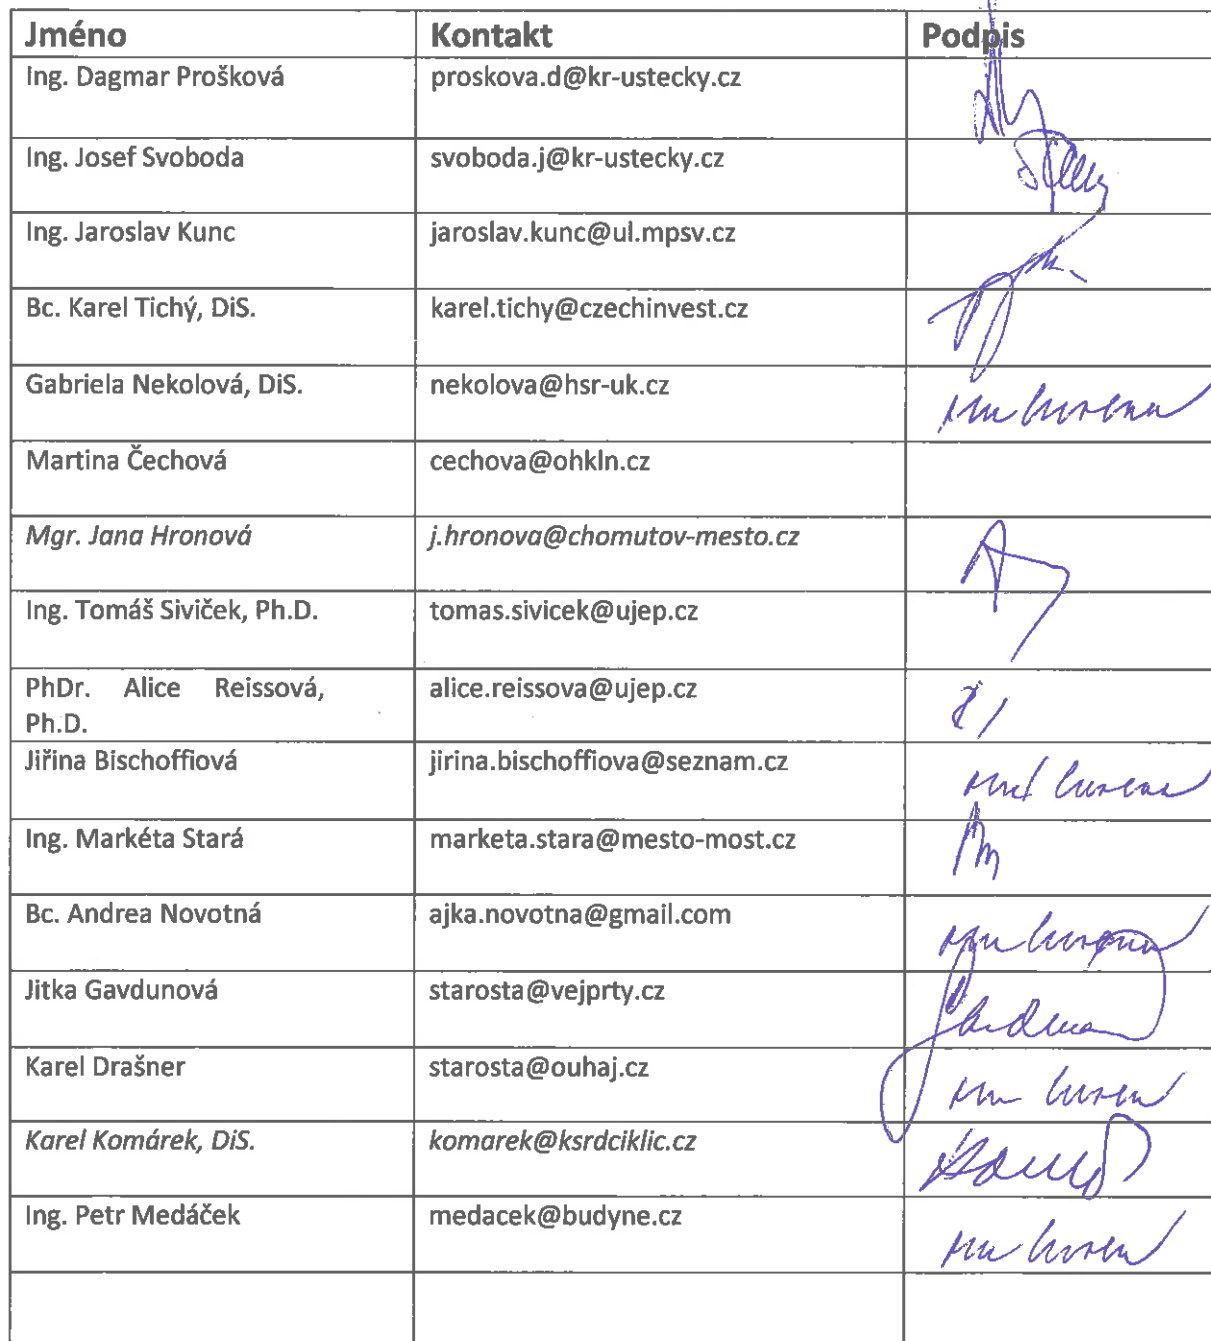 Jméno Kontakt Podpis
Ing. Dagmar Prošková proskova.d@kr-ustecky.cz
Ing. Josef Svoboda svoboda.j@kr-ustecky.cz
Ing. Jaroslav Kunc jaroslav.kunc@ul.mpsv.cz
Bc. Karel Tichý, DiS. karel.tichy@czechinvest.cz
Gabriela Nekolová, DiS. nekolova@hsr-uk.cz
Martina Čechová cechova@ohkln.cz
Mgr. Jana Hronová j.hronova@chomutov-mesto.cz
Ing. Tomáš Siviček, Ph.D. tomas.sivicek@ujep.cz
PhDr. Alice Reissová, alice.reissova@ujep.cz
Ph.D.
Jiřina Bischoffiová jirina.bischoffiova@seznam.cz
Ing. Markéta Stará marketa.stara@mesto-most.cz
Bc. Andrea Novotná ajka.novotna@gmail.com
Jitka Gavdunová starosta@vejprty.cz
Karel Drašner starosta@ouhaj.cz
Karel Komárek, DiS. komarek@ksrdciklic.cz
Ing. Petr Medáček medacek@budyne.cz